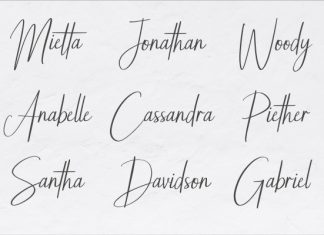 Mietta Jonathan Woody
Anabelle Cassandra Piether
Santha Davidson Gabriel